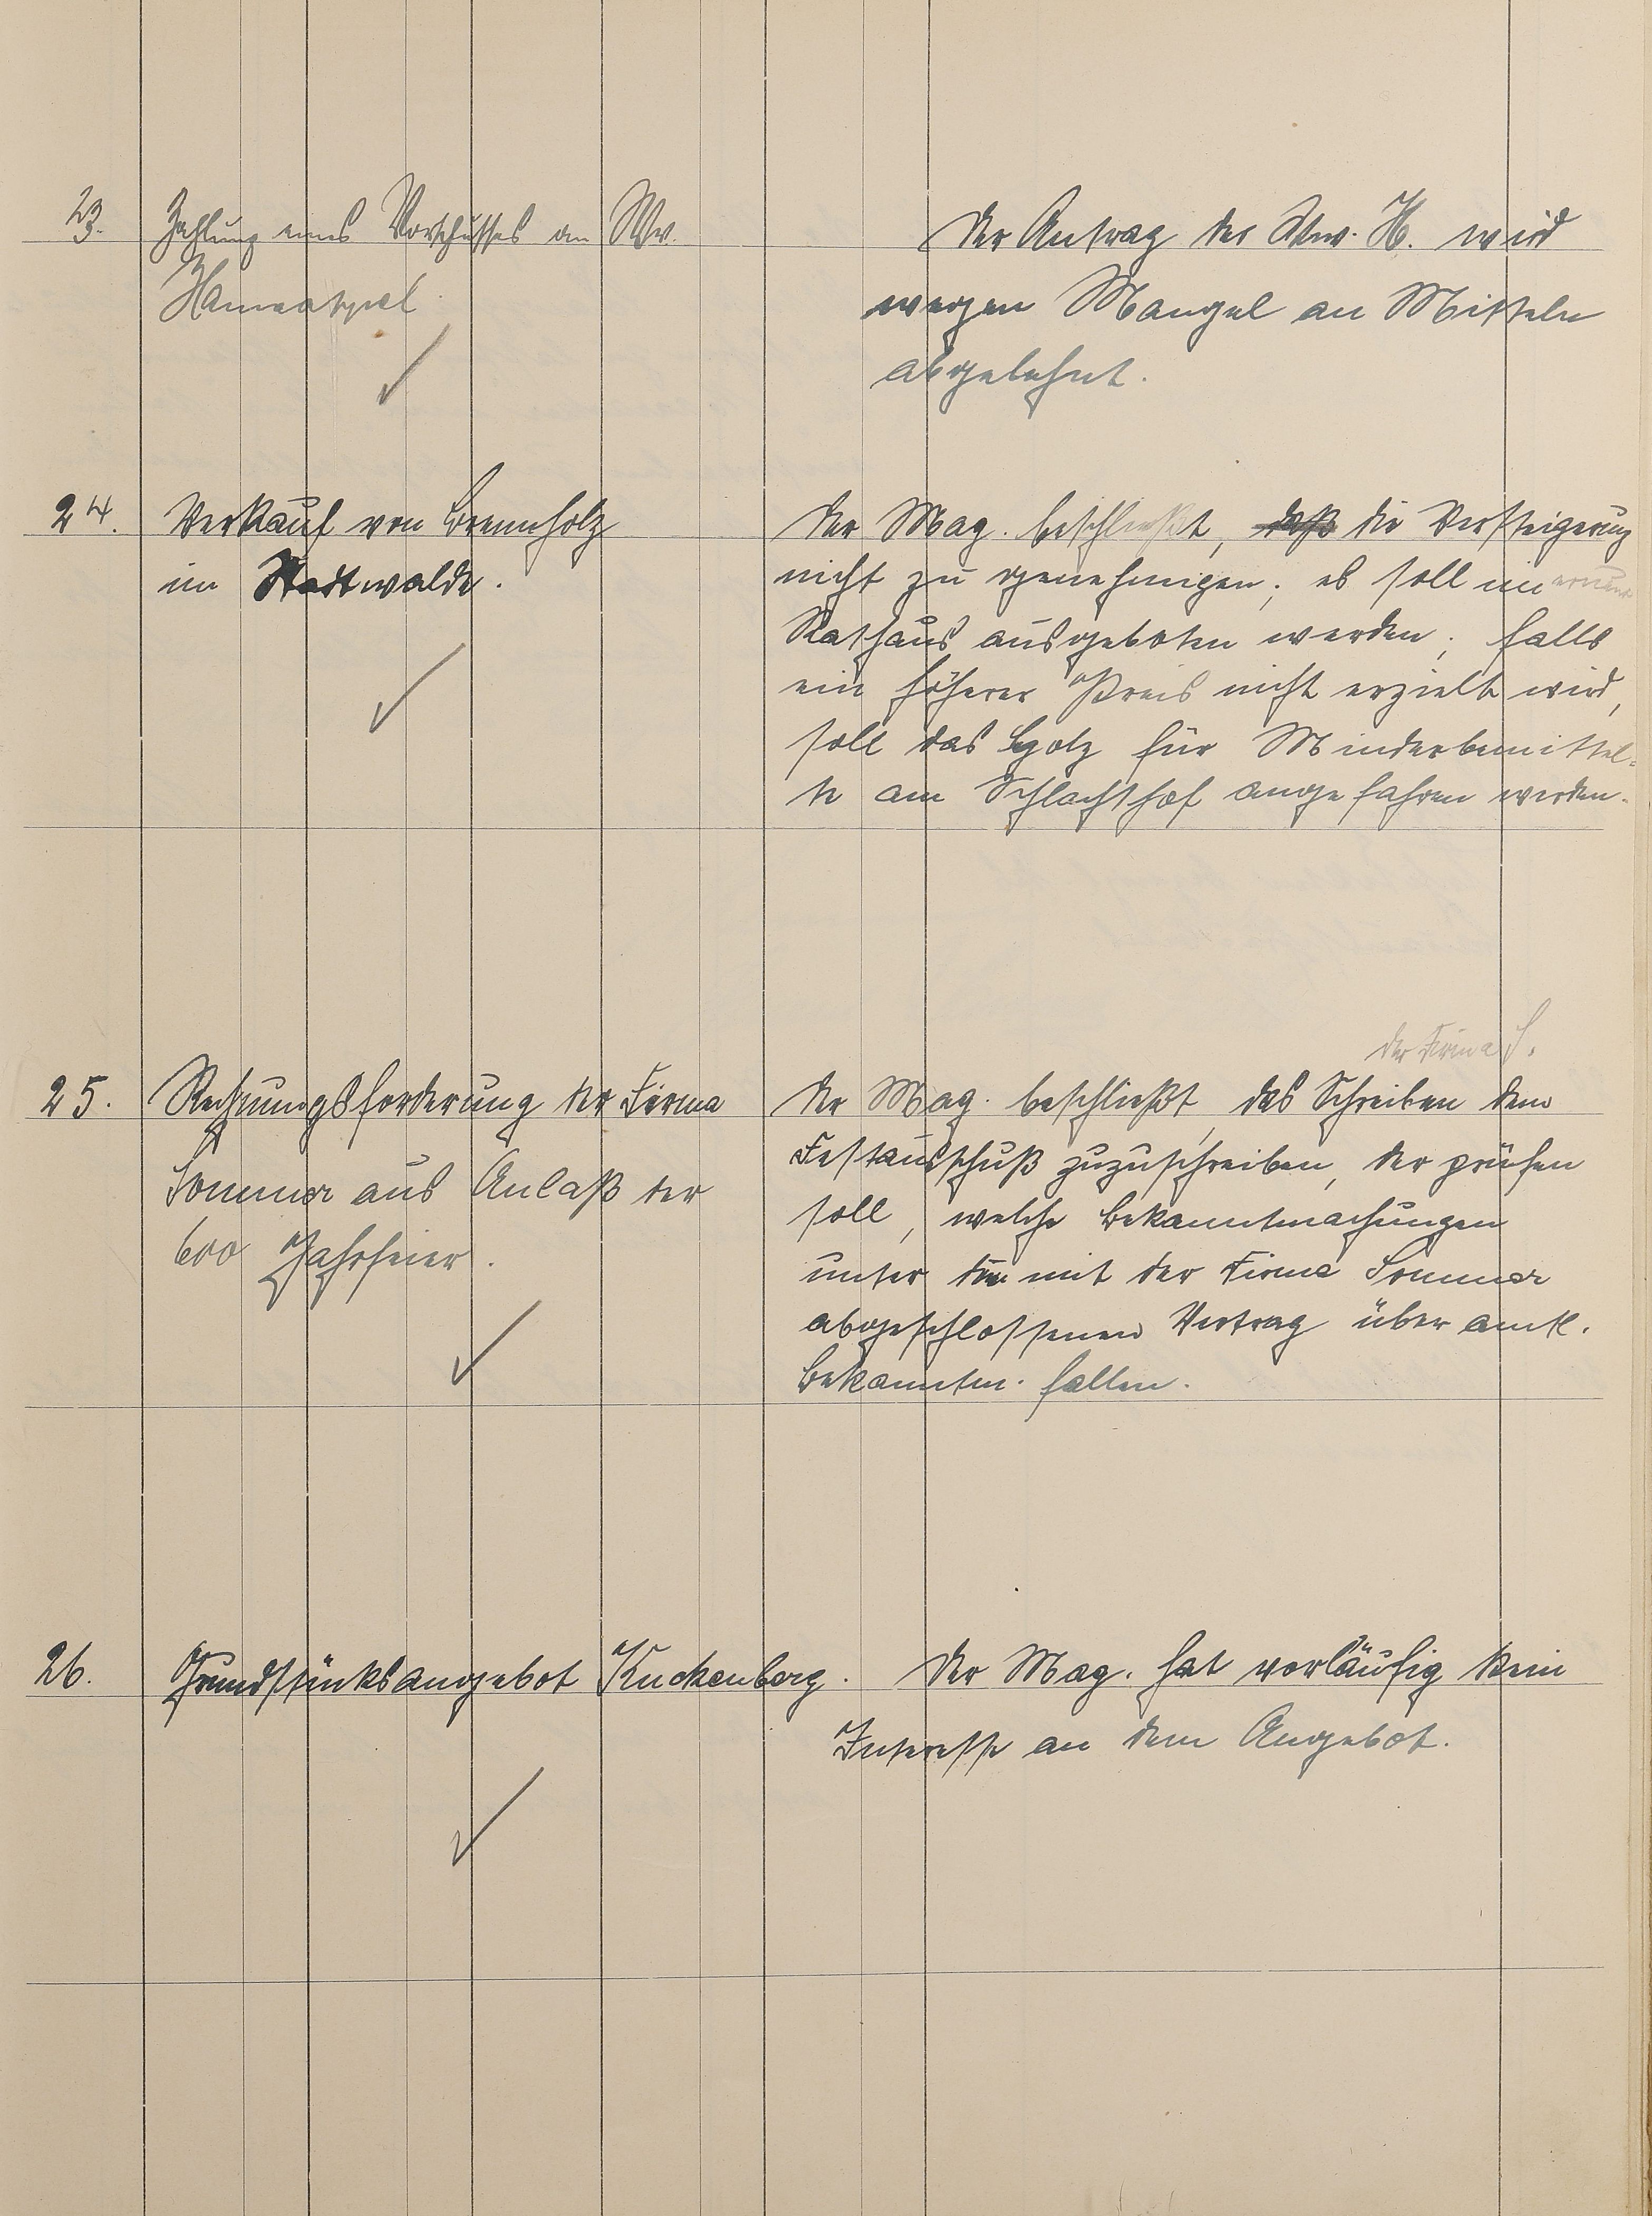 23.
Zahlung eines Vorschusses an Ww.
Der Antrag der Ww. H. wird
wegen Mangel an Mitteln
abgelehnt.
24.
Verkauf von Brennholz
im Stadtwalde.
Der Mag. beschließt, daß die Versteigerung
nicht zu genehmigen; es soll im erneut
Rathaus ausgeboten werden; falls
ein höherer Preis nicht erzielt wird,
soll das Holz für Minderbemittel=
te am Schlachthof angefahren werden.
25.
Rechnungsforderung der Firma
Sommer aus Anlaß der
600 Jahrfeier.
der Firma S.
Der Mag. beschließt, das Schreiben dem
Festausschuß zuzuschreiben, der prüfen
soll, welche Bekanntmachungen
unter den mit der Firma Sommer
abgeschlossenen Vertrag über amtl.
Bekanntm. fallen.
26.
Grundstücksangebot Kuckenberg.
Der Mag. hat vorläufig kein
Interesse an dem Angebot.